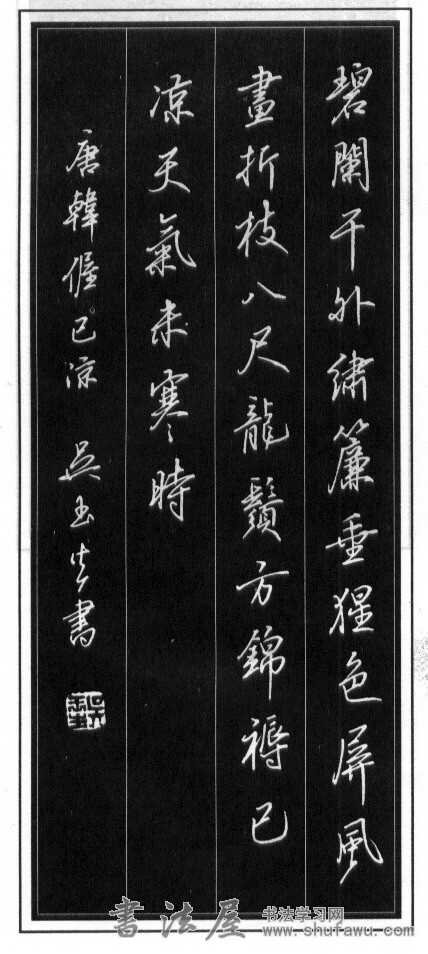 碧闌干外繡簾垂猩色屏風
畫折枝八尺龍鬚方錦褥已
涼天氣未寒時
唐韓偓已涼 吳玉生書
書法屋 书法学习网
www.shufawu.com